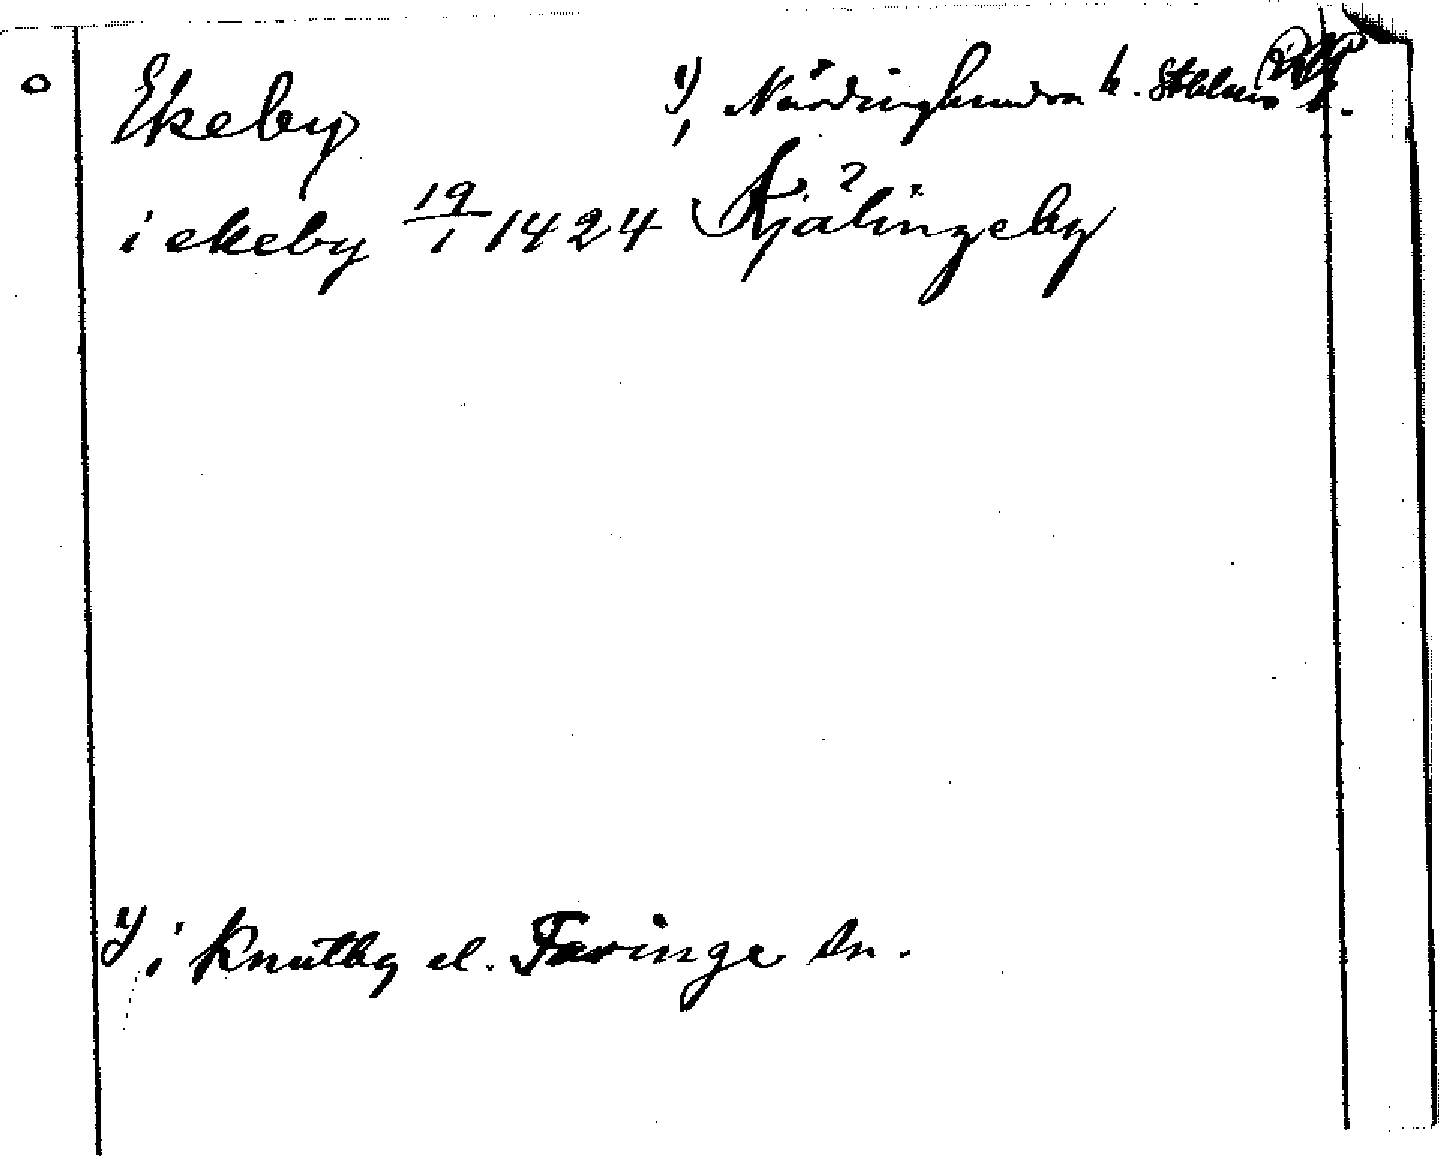 Ekeby 1) Närdinghundra h. Sthlms l.
i ekeby 19/1 1424 Kjälingeby ?
1) i Knutby el. Faringe sn.